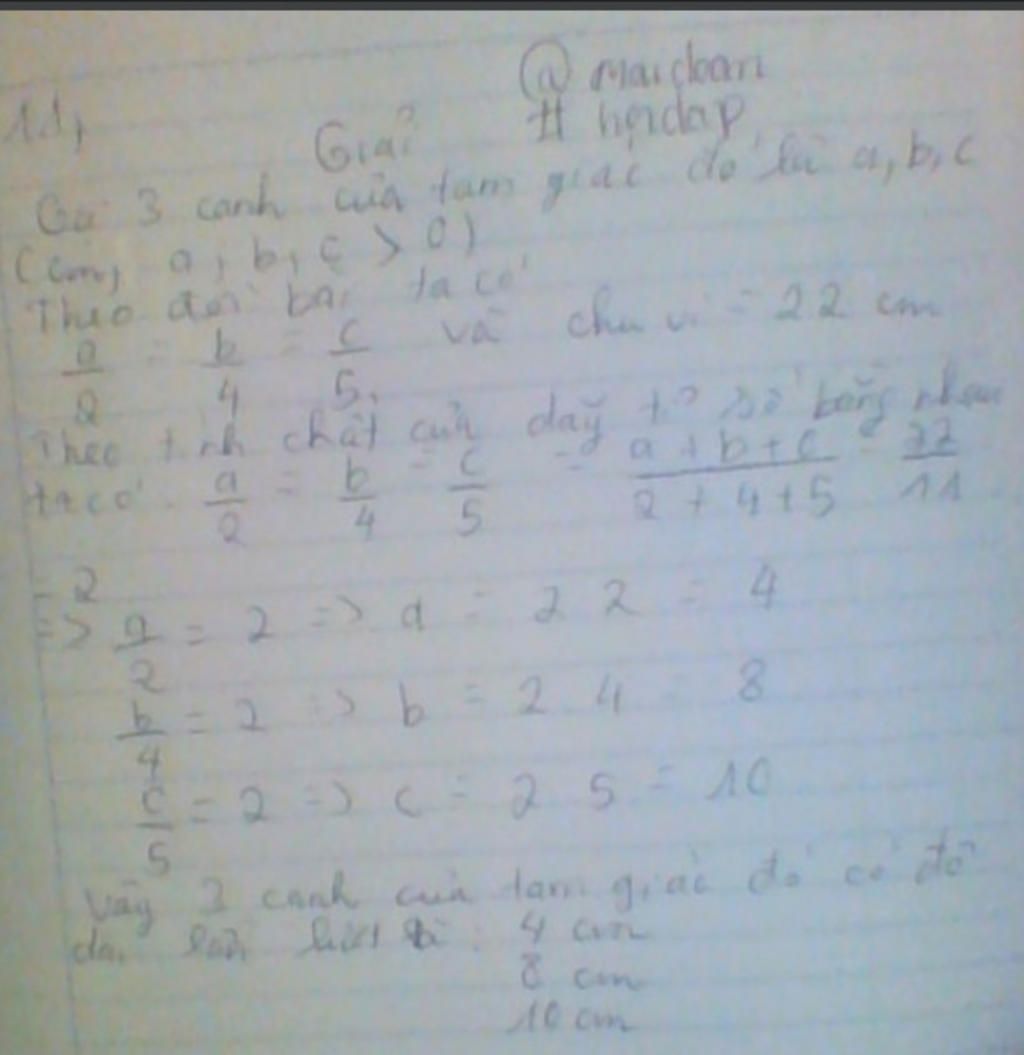 @ maidoan
# hoidap
Giải
3 cạnh của tam giác đó là a, b, c
(cm, a, b, c > 0)
Theo bài ta có
a/2 = b/4 = c/5. và chu vi = 22 cm
Theo tính chất của dãy tỉ số bằng nhau
ta có: a/2 = b/4 = c/5 = a + b + c / 2 + 4 + 5 = 22/11
= 2
=> a/2 = 2 => a = 2 2 = 4
b/4 = 2 => b = 2 4 = 8
c/5 = 2 => c = 2 5 = 10
Vậy 3 cạnh của tam giác đó có độ
dài lần lượt là: 4 cm
8 cm
10 cm